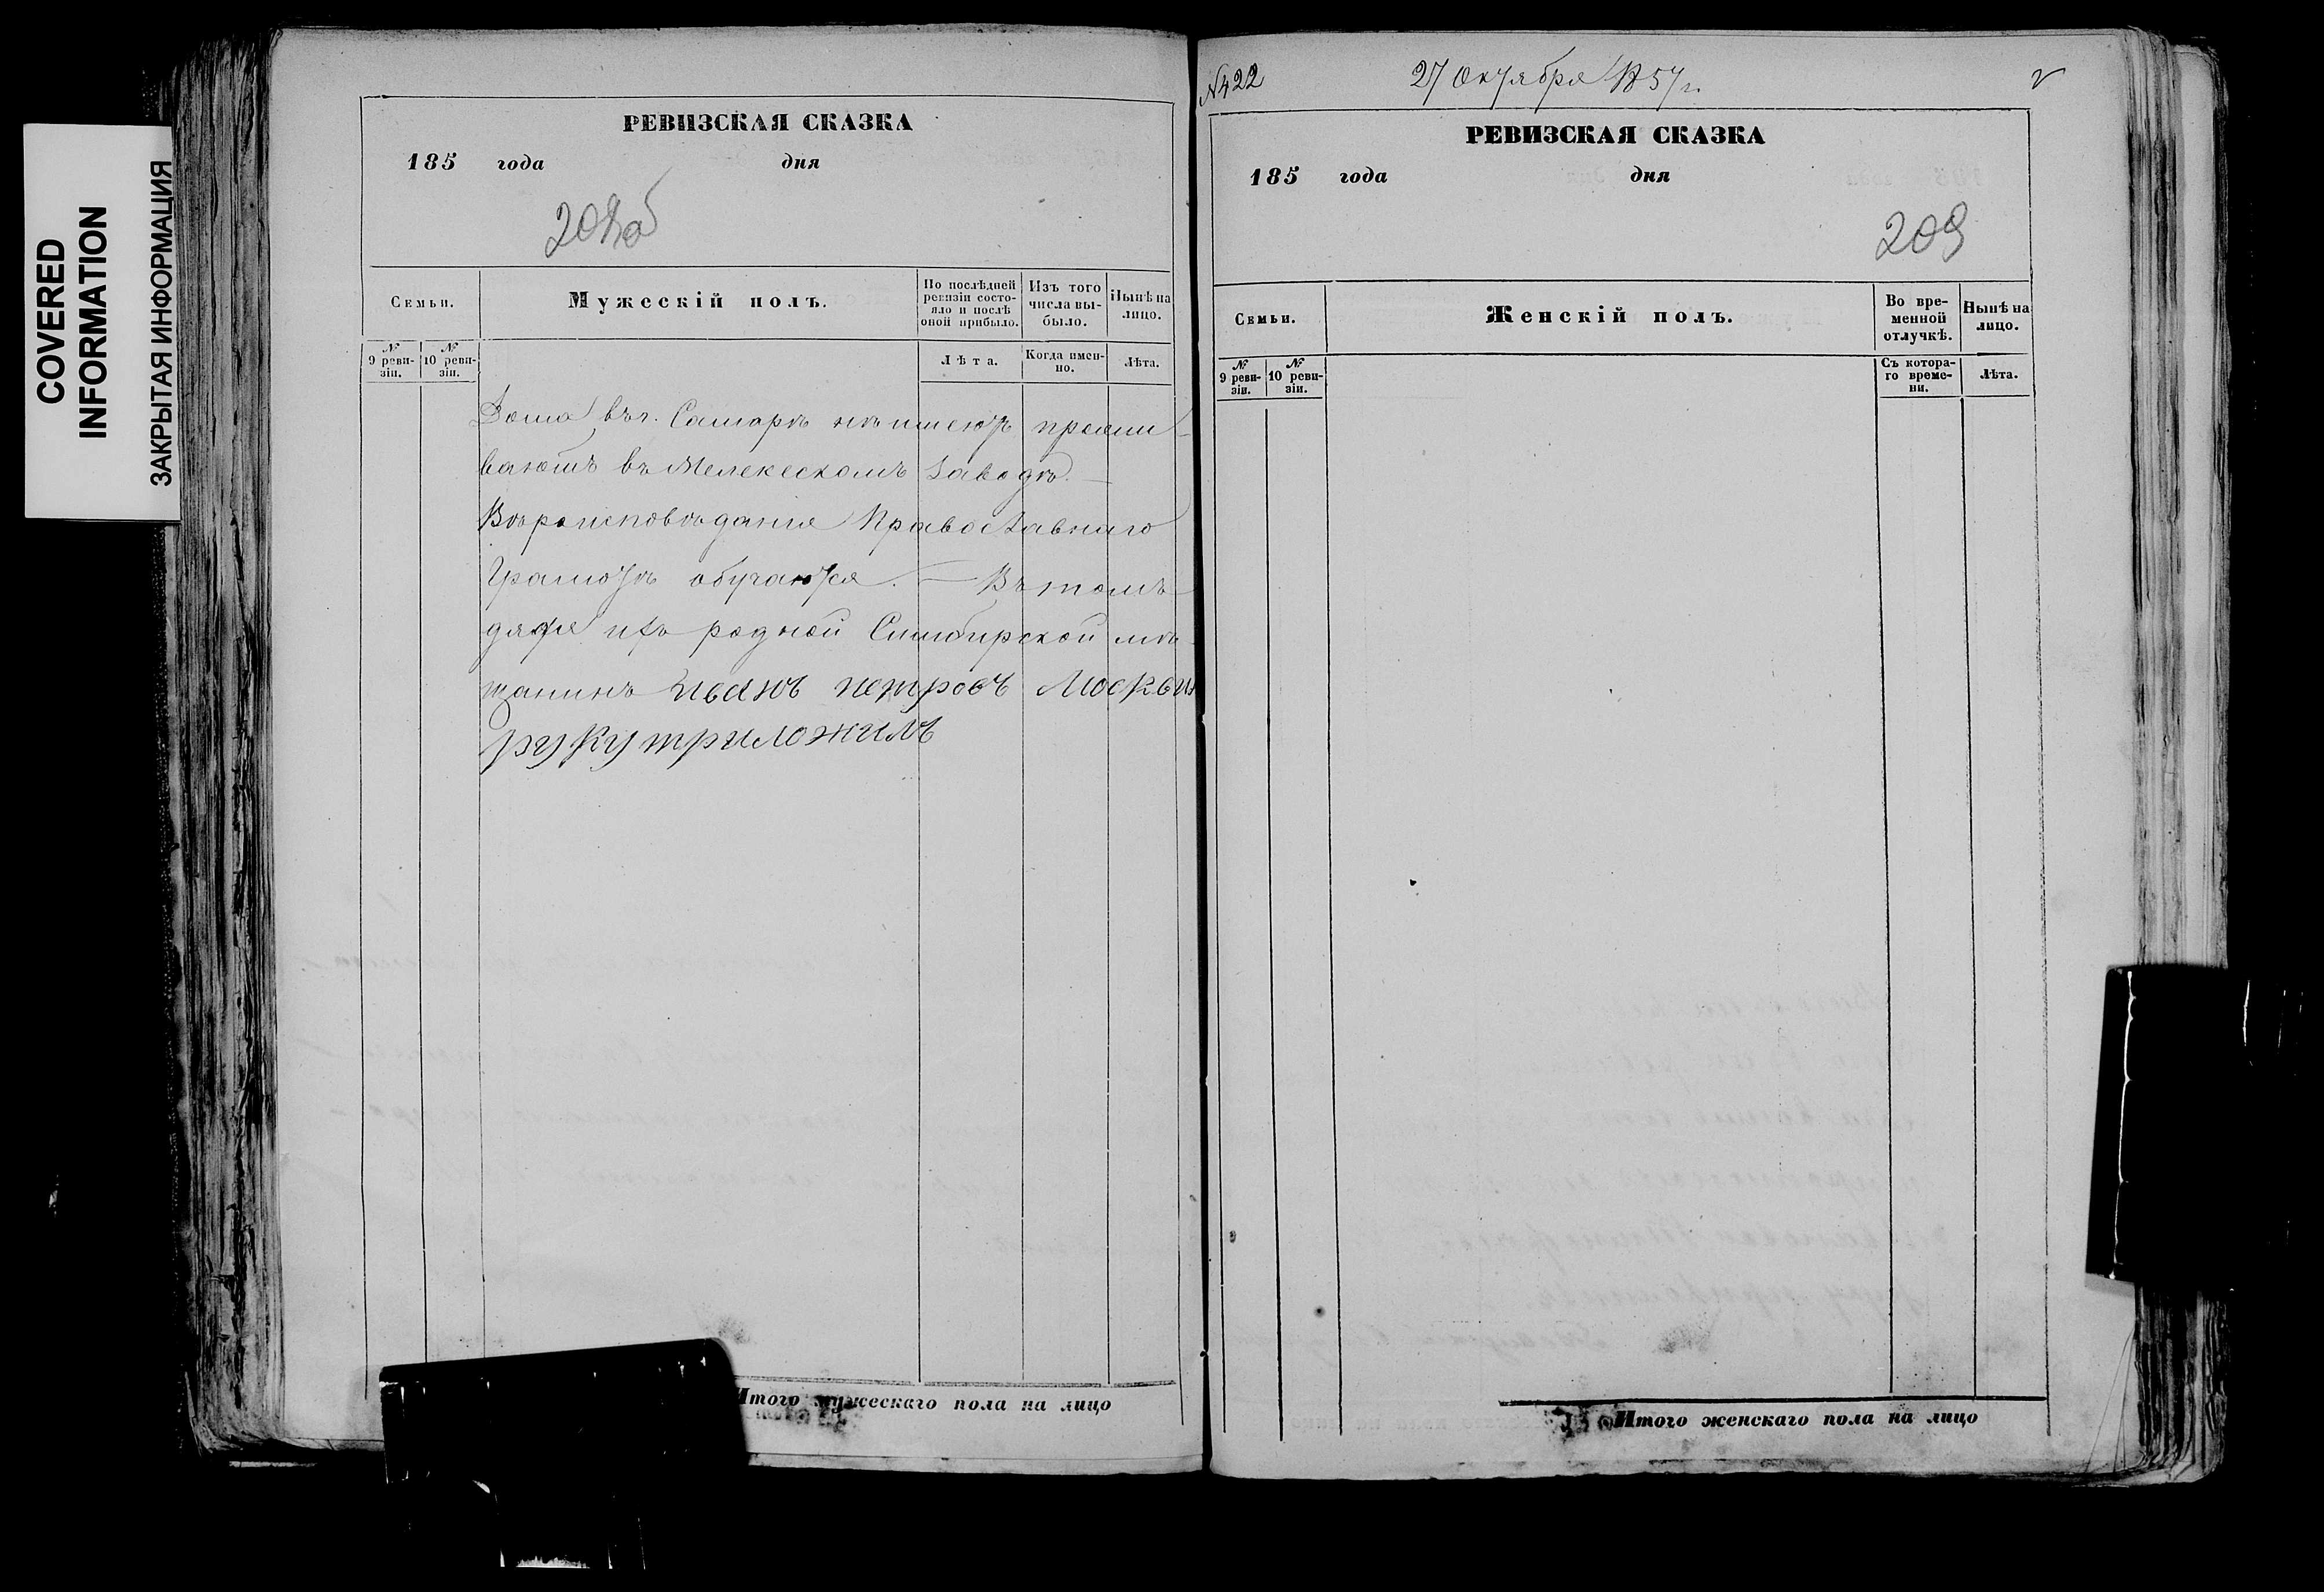 COVERED
INFORMATION
ЗАКРЫТАЯ ИНФОРМАЦИЯ
РЕВИЗСКАЯ СКАЗКА
185 года дня
208об
Семьи.
Мужескій полъ.
По послѣдней ревизіи состояло и послѣ оной прибыло.
Изъ того числа выбыло.
Нынѣ на лицо.
№ 9 ревизіи.
№ 10 ревизіи.
Лѣта.
Когда именно.
Лѣта.
Дома въ г. Самарѣ неимеютъ прожи-
ваютъ въ Мелекескомъ заводѣ. —
Вѣроисповѣдания Православнаго
Грамотѣ обучаются. — Въ томъ
дядя ихъ родной Симбирской мѣ-
щанинъ Иванъ петровъ Москвин
руку приложилъ
Итого мужескаго пола на лицо
№ 422
27 Октября 1857 г.
РЕВИЗСКАЯ СКАЗКА
185 года дня
209
Семьи.
Женскій полъ.
Во временной отлучкѣ.
Нынѣ на лицо.
№ 9 ревизіи.
№ 10 ревизіи.
Съ котораго времени.
Лѣта.
Итого женскаго пола на лицо